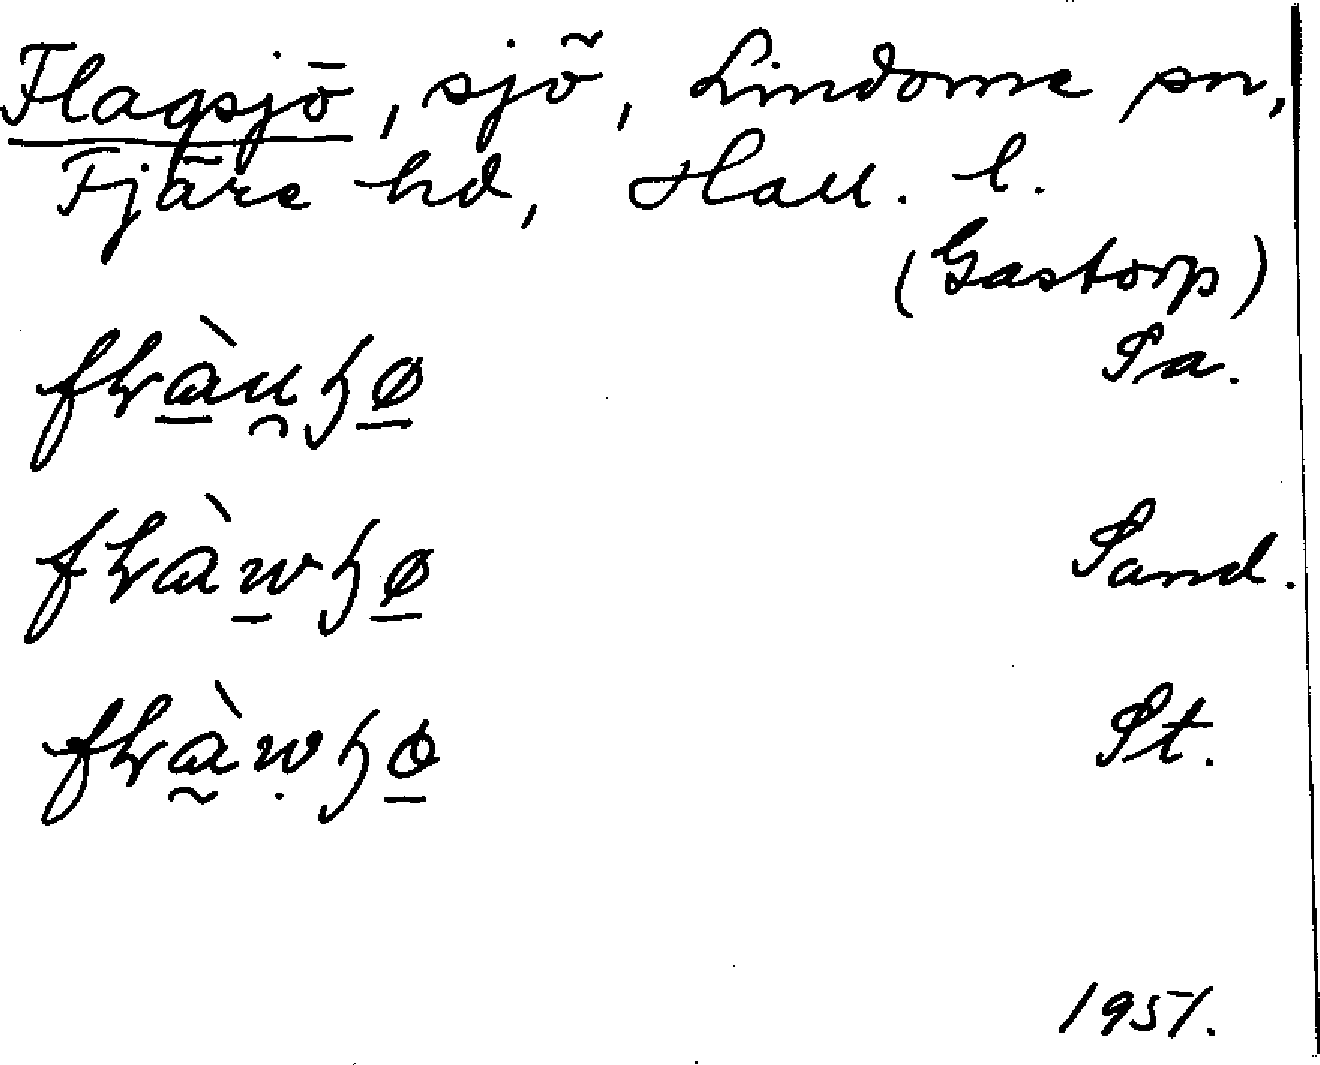 Flagsjö, sjö, Lindome sn,
Fjäre hd, Hall. l.
(Gastorp)
Sa.
Sand.
St.
1951.